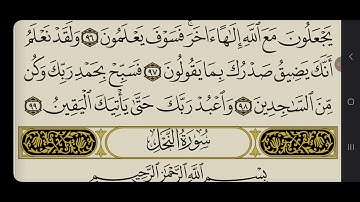 يَجْعَلُونَ مَعَ اللَّهِ إِلَٰهًا ءَاخَرَ ۚ فَسَوْفَ يَعْلَمُونَ ٩٦ وَلَقَدْ نَعْلَمُ
أَنَّكَ يَضِيقُ صَدْرُكَ بِمَا يَقُولُونَ ٩٧ فَسَبِّحْ بِحَمْدِ رَبِّكَ وَكُن
مِّنَ السَّاجِدِينَ ٩٨ وَاعْبُدْ رَبَّكَ حَتَّىٰ يَأْتِيَكَ الْيَقِينُ ٩٩
سُورَةُ النَّحْلِ
بِسْمِ اللَّهِ الرَّحْمَٰنِ الرَّحِيمِ